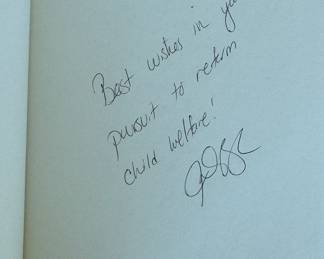 Best wishes in yo
pursuit to reform
child welfare!